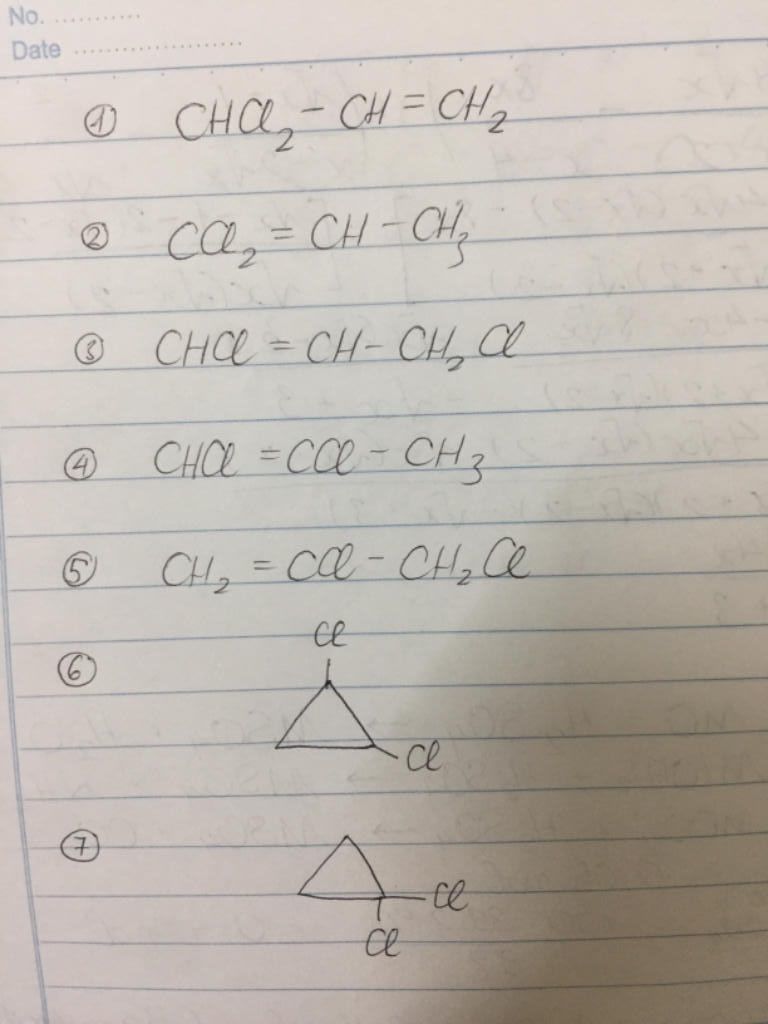 No. ............
Date ........................
① CHCl₂ – CH = CH₂
② CCl₂ = CH – CH₃
③ CHCl = CH – CH₂Cl
④ CHCl = CCl – CH₃
⑤ CH₂ = CCl – CH₂Cl
⑥ Cl
Cl
⑦ Cl
Cl